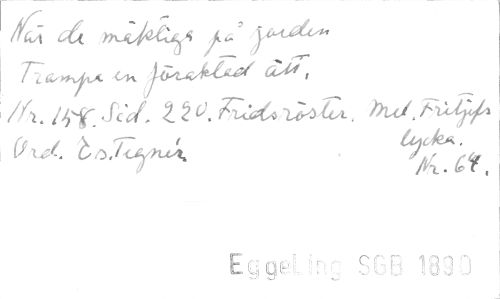 När de mäktiga på jorden
Trampa en föraktad ätt,
Nr. 158. Sid. 220. Fridsröster. Mel. Fritjofs
lycka.
Ord. Es. Tegnér. Nr. 64.
Eggeling SGB 1890